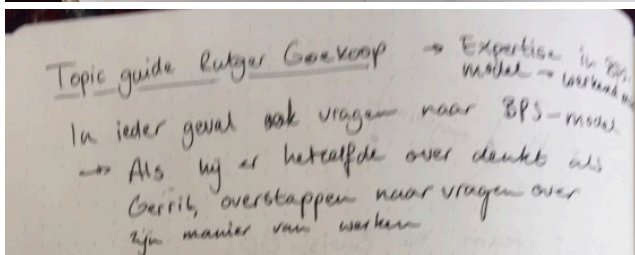 Topic guide Rutger Goekoop → Expertise in
model → werkend
In ieder geval ook vragen naar BPS-model
→ Als hij er hetzelfde over denkt als
Gerrit, overstappen naar vragen over
zijn manier van werken